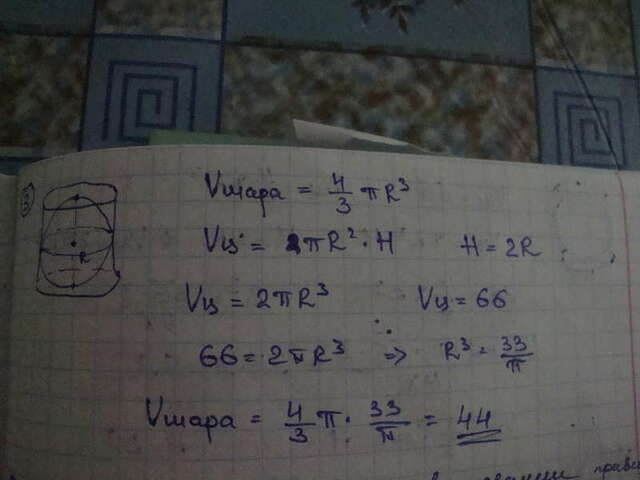 3
R
Vшара = 4/3 πR³
Vц = πR² · H H = 2R
Vц = 2πR³ Vц = 66
66 = 2πR³ => R³ = 33/π
Vшара = 4/3 π · 33/π = 44